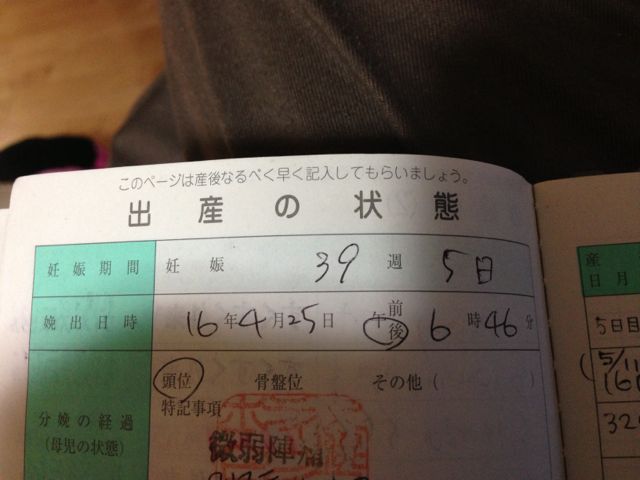 このページは産後なるべく早く記入してもらいましょう。
出産の状態
妊娠期間 妊娠 39 週 5日
娩出日時 16年4月25日 午前後 6時46分
頭位 骨盤位 その他(
特記事項
分娩の経過
(母児の状態)
微弱陣痛
産
日月
5日目
5/11